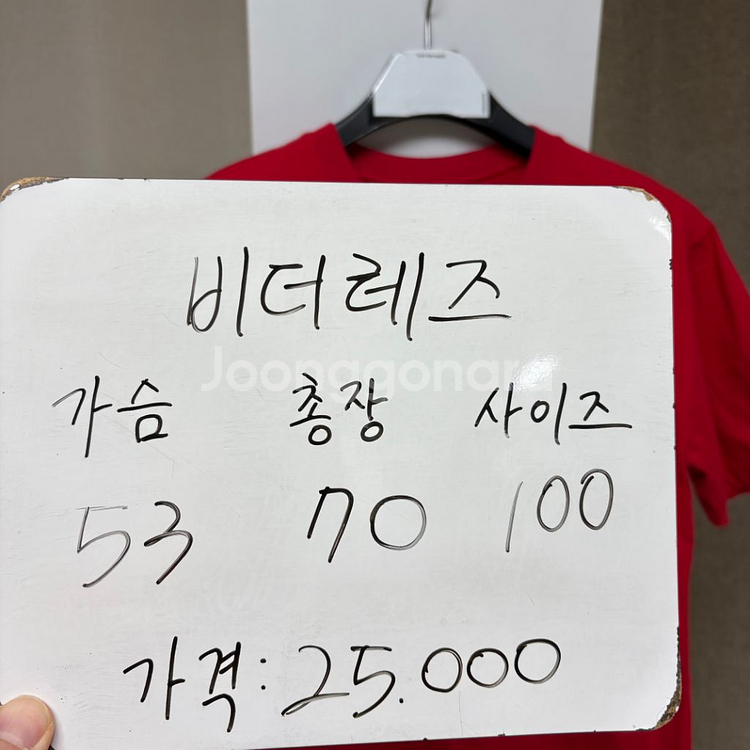 비더레즈
Joonggonara
가슴 총장 사이즈
53 70 100
가격: 25.000